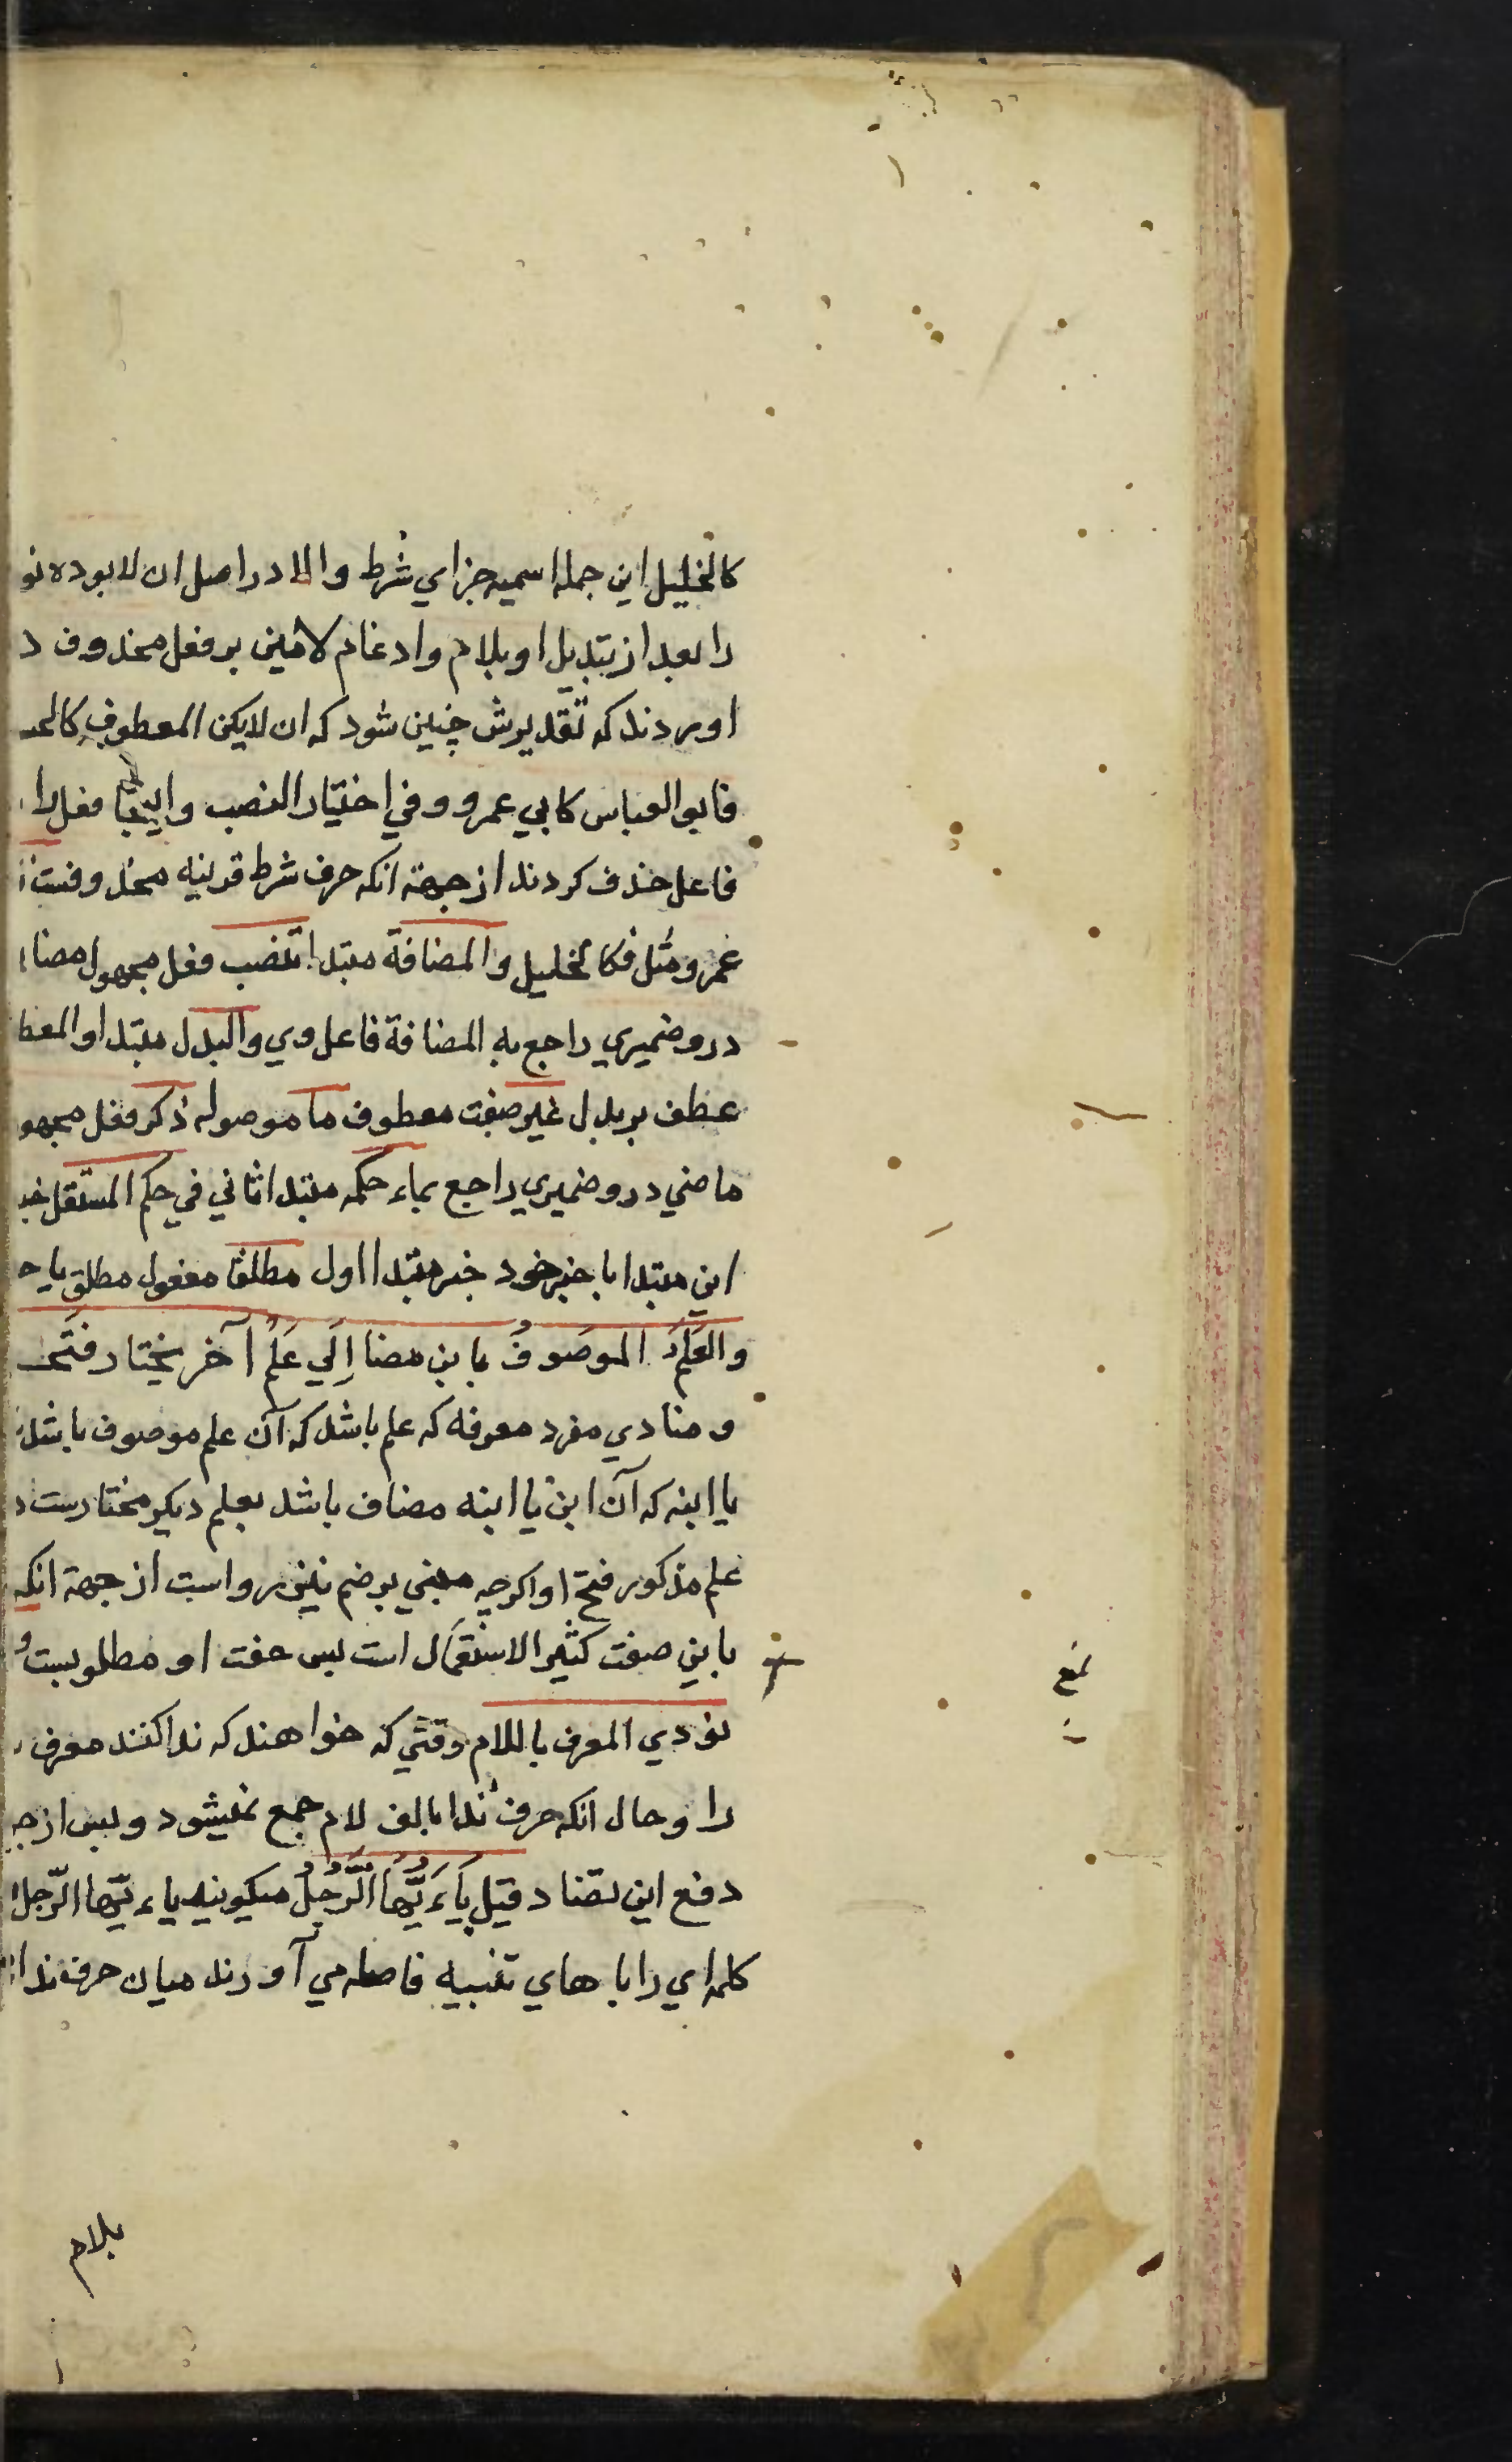 كالخليل اين جمله اسميه جزاي شرط والا در اصل ان لا بوده نو
را بعد از تبديل او بلام وادغام لامين بر فعل محذوف د
اوردند كه تقديرش چنين شود كه ان لايكن المعطوف كالحـ
فابو العباس كابي عمرو وفي اختيار النصب واينجا فعل را
فاعل حذف كردند از جهة انكه حرف شرط قرينه محذوفست
عمرو مثل فكالخليل والمضافة مبتدا تنصب فعل مجهول مضا
درو ضميري راجع به المضافة فاعل وي والبدل مبتدا والمعطـ
عطف بر بدل غير صفت معطوف ما موصوله ذكر فعل مجهو
ماضي درو ضميري راجع بماء حكمه مبتدا ثاني في حكم المستقل خبر
اين مبتدا با خبر خود خبر مبتدا اول مطلقا مفعول مطلق يا حـ
والعَلَمُ الموصَوفُ بابن مضا اِلَي عَلَمٍ آخر يختار فتحـ
و منادي مفرد معرفه كه علم باشد كه آن علم موصوف باشد
يا ابنه كه آن ابن يا ابنه مضاف باشد بعلم ديكر مختارست د
علم مذكور فتح او اكرچه مبني بر ضم نيز رواست از جهة انكه
باين صفت كثير الاستعمال است پس خفت او مطلوبست و
نودي المعرف باللام وقتي كه خواهند كه ندا كنند معرف
را و حال انكه حرف ندا بالف لام جمع نميشود و پس از جـ
دفع اين تضاد قيل يَاءَيُّها الرَّجُلُ ميكويند ياءيّها الرّجل ا
كلمه اي را با هاي تنبيه فاصله مي آورند ميان حرف ندا
بلام